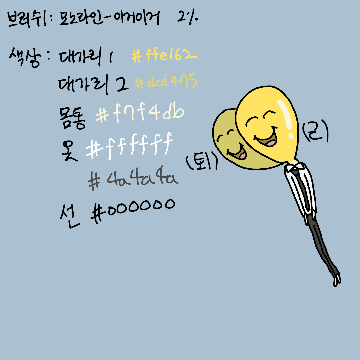 브러쉬: 모노라인-이거이거 2%
색상: 대가리1 #ffe162
대가리2 #dcd475
몸통 #f7f4db
옷 #ffffff
#4a4a4a
선 #000000
(퇴)
(근)